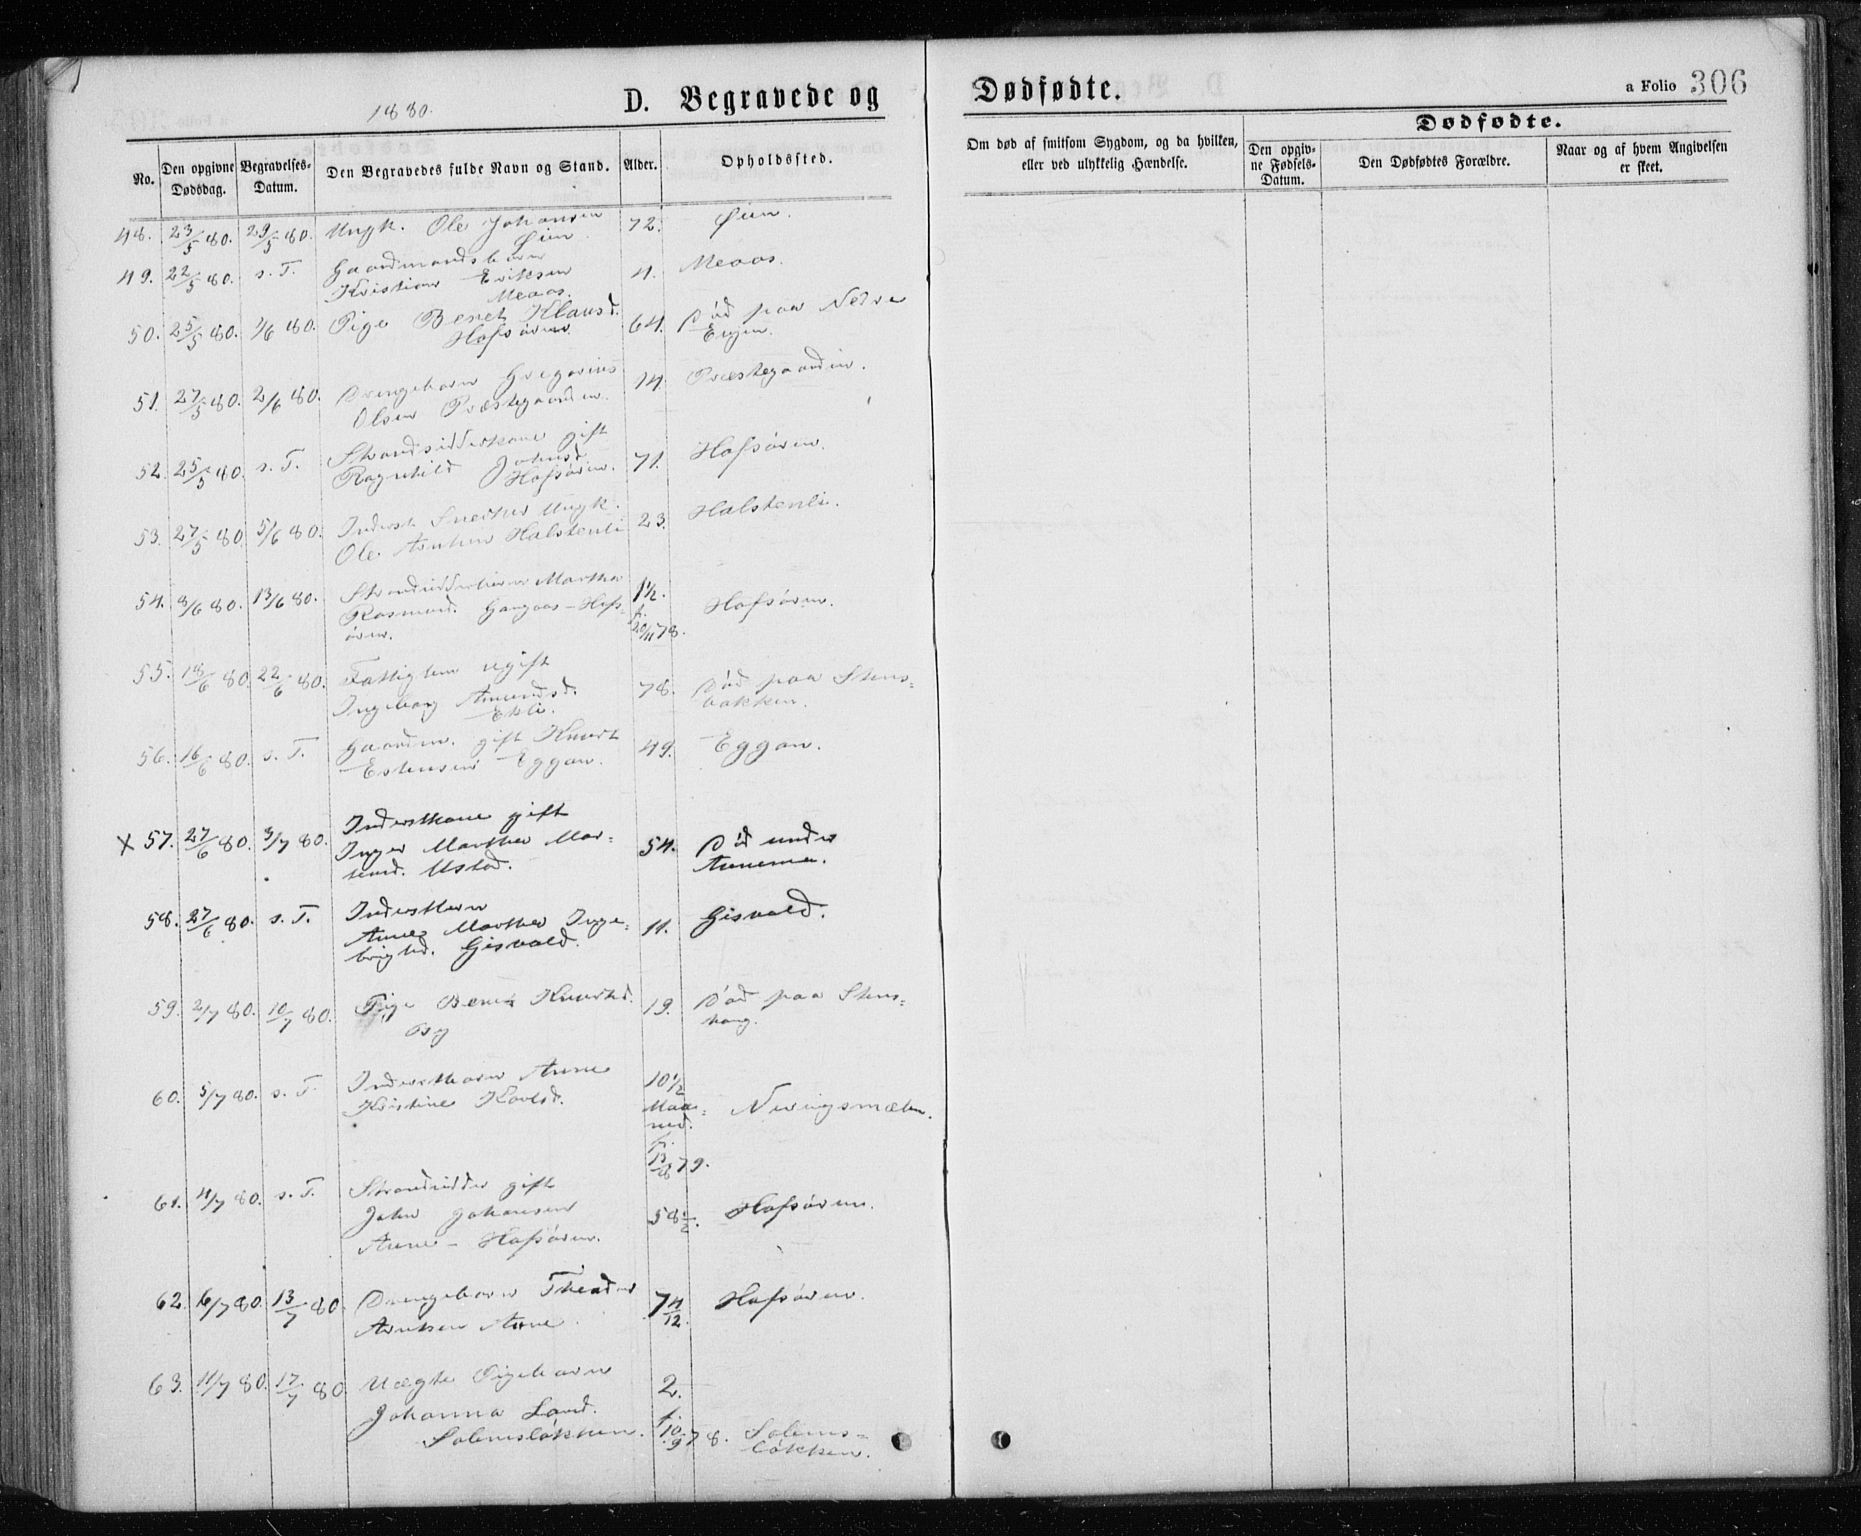 1880.
D. Begravede og
Dødfødte.
a Folio 306
No.
Den opgivne Dødsdag.
Begravelses-Datum.
Den Begravedes fulde Navn og Stand.
Alder.
Opholdssted.
Om død af smitsom Sygdom, og da hvilken,
eller ved ulykkelig Hændelse.
Dødfødte.
Den opgiv-
ne Fødsels-
Datum.
Den Dødfødtes Forældre.
Naar og af hvem Angivelsen
er skeet.
48. 23/5 80. 29/5 80. Ungk. Ole Johansen 72. Øien.
Øien
49. 22/5 80. s. T. Gaardmandsbarn 4. Meaas.
Kristian Eriksen
Meaas.
50. 25/5 80. 2/6 80. Pige Beret Klausd. 64. Død paa Nedre
Hofsøren Eigen.
51. 27/5 80. 2/6 80. Drengebarn Gregorius 14. Præstegaarden.
Olsen Præstegaarden.
52. 25/5 80. s. T. Strandsidderkone gift 71. Hofsøren.
Ragnhild Johnsd.
Hofsøren.
53. 27/5 80. 5/6 80. Inderst Snedker Ungk. 23. Halstenli.
Ole Arntsen Halstenli
54. 8/6 80. 13/6 80. Strandsidderbarn Martha 1½.
Rasmusd. Gangaas - Hofs- f. Hofsøren.
øren. 20/11 78.
55. 18/6 80. 22/6 80. Fattiglem ugift
Ingeborg Amundsd. 78. Død paa Stens-
Ekli. bakken.
56. 16/6 80. s. T. Gaardm. gift Knut 49. Eggan.
Estensen Eggan.
X 57. 27/6 80. 3/7 80. Inderstkone gift
Inger Marthea Mor- 54. Død under
tensd. Ustad. Aunemo.
58. 27/6 80. s. T. Inderstbarn
Anne Marthea Inge- 11. Gisvold.
brigtsd. Gisvold.
59. 2/7 80. 10/7 80. Pige Beret Knutsd. 19. Død paa Stens-
By haug.
60. 5/7 80. s. T. Inderstbarn Anne 10½
Kristine Karlsd. Maa- Neringsmælen.
ned.
f.
13/8 79.
61. 4/7 80. s. T. Strandsidder gift
John Johansen 58½. Hofsøren.
Aune - Hofsøren.
62. 6/7 80. 13/7 80. Drengebarn Theodor 7 4/12 Hofsøren.
Arntsen Aune.
63. 11/7 80. 17/7 80. Uægte Pigebarn 2.
Johanna Larsd. f.
Solemsløkken. 10/9 78. Solems-
løkken.